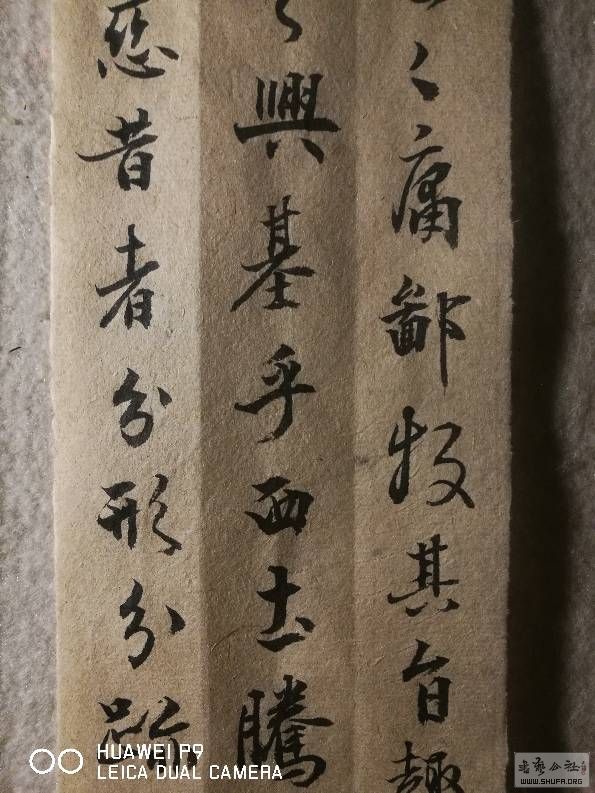 々庸鄙投其旨趣
興基乎西土騰
慈昔者分形分跡
HUAWEI P9
LEICA DUAL CAMERA
书艺公社
WWW.SHUFA.ORG